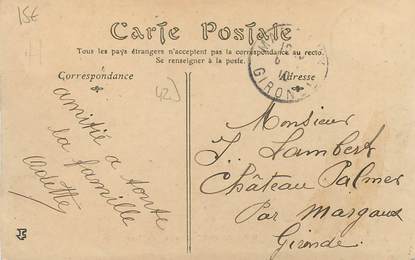 15€
Carte Postale
Tous les pays étrangers n'acceptent pas la correspondance au recto.
Se renseigner à la poste.
Correspondance
Adresse
GIRON
amitié a toute
la famille
Odette
Monsieur
J. Lambert
Château Palmer
Par Margaux
Gironde.